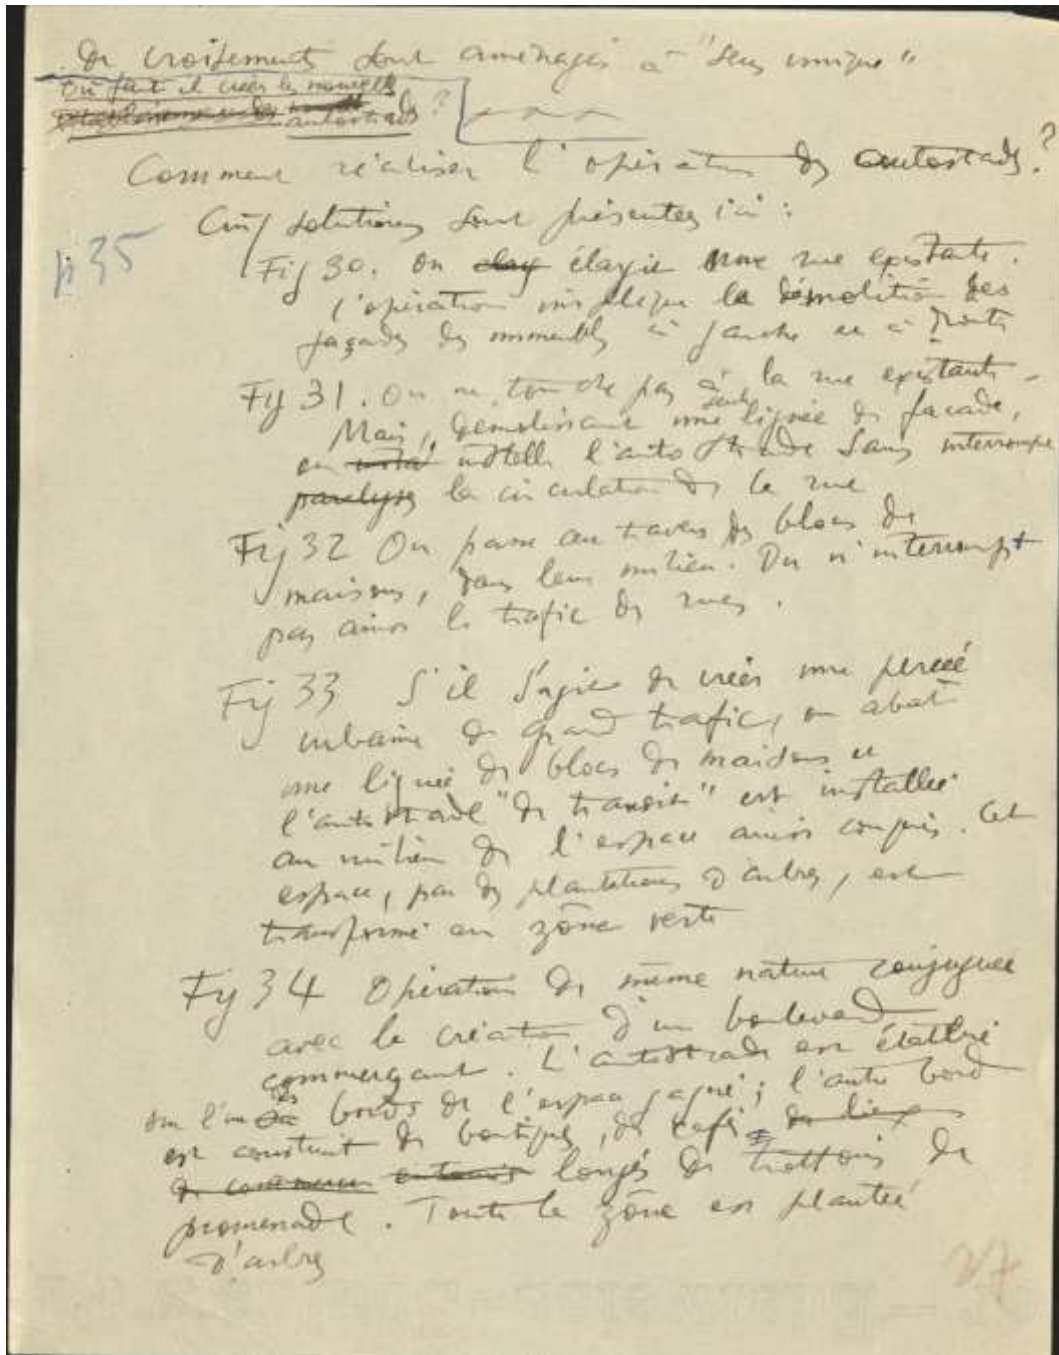 de croisements sont aménagés à "sens unique"
Où faut il créer les nouvelles
établissement des autostrades ?
Comment réaliser l'opération des autostrades ?
Cinq solutions sont présentées ici :
p 35
Fig 30. On élargit une rue existante.
l'opération implique la démolition des
façades des immeubles à gauche et à droite
Fig 31. On ne touche pas à la rue existante.
Mais, démolissant une seule lignée de façade,
on installe l'autostrade sans interrompre
paralyser la circulation de la rue
Fig 32 On passe au travers des blocs de
maisons, dans leur milieu. On n'interrompt
pas ainsi le trafic des rues.
Fig 33 S'il s'agit de créer une percée
urbaine de grand trafic, on abat
une lignée de blocs de maisons et
l'autostrade "de transit" est installée
au milieu de l'espace ainsi conquis. Cet
espace, par des plantations d'arbres, est
transformé en zône verte
Fig 34 Opération de même nature conjuguée
avec la création d'un boulevard
commerçant. L'autostrade est établie
sur l'un des bords de l'espace gagné; l'autre bord
est construit de boutiques, de cafés de lieux
de commerce longés de trottoirs de
promenade. Toute la zône est plantée
d'arbres
27